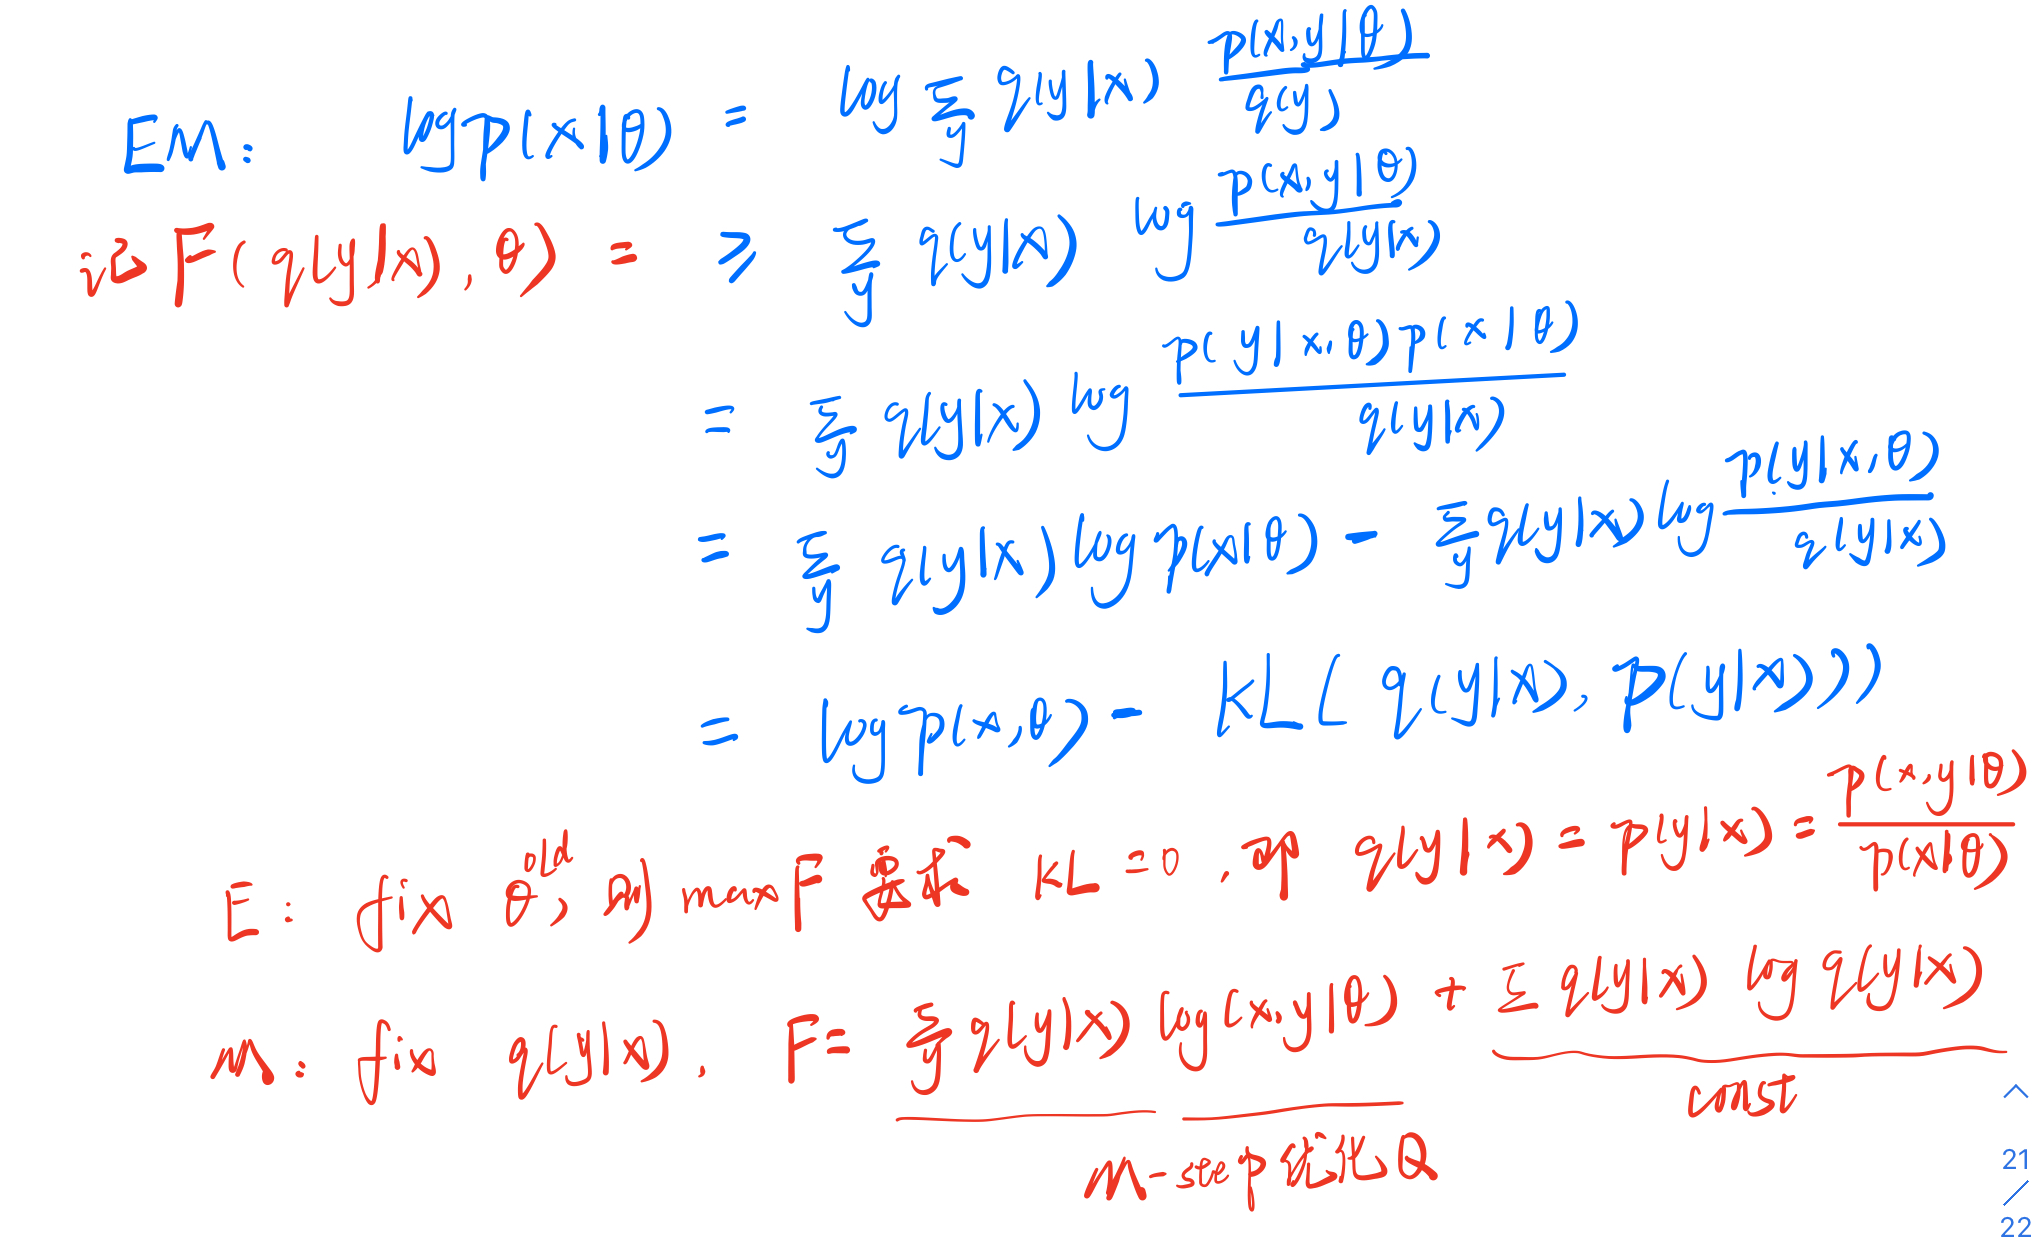 EM: log p(x|θ) = log Σ_y q(y|x) p(x,y|θ) / q(y)
记 F(q(y|x), θ) = ≥ Σ_y q(y|x) log p(x,y|θ) / q(y|x)
= Σ_y q(y|x) log p(y|x,θ)p(x|θ) / q(y|x)
= Σ_y q(y|x) log p(x|θ) - Σ_y q(y|x) log p(y|x,θ) / q(y|x)
= log p(x,θ) - KL( q(y|x), p(y|x)))
E: fix θ^old, 则 max F 要求 KL=0, 即 q(y|x) = p(y|x) = p(x,y|θ) / p(x|θ)
M: fix q(y|x), F = Σ_y q(y|x) log(x,y|θ) + Σ q(y|x) log q(y|x)
const
M-step 优化 Q
21
/
22